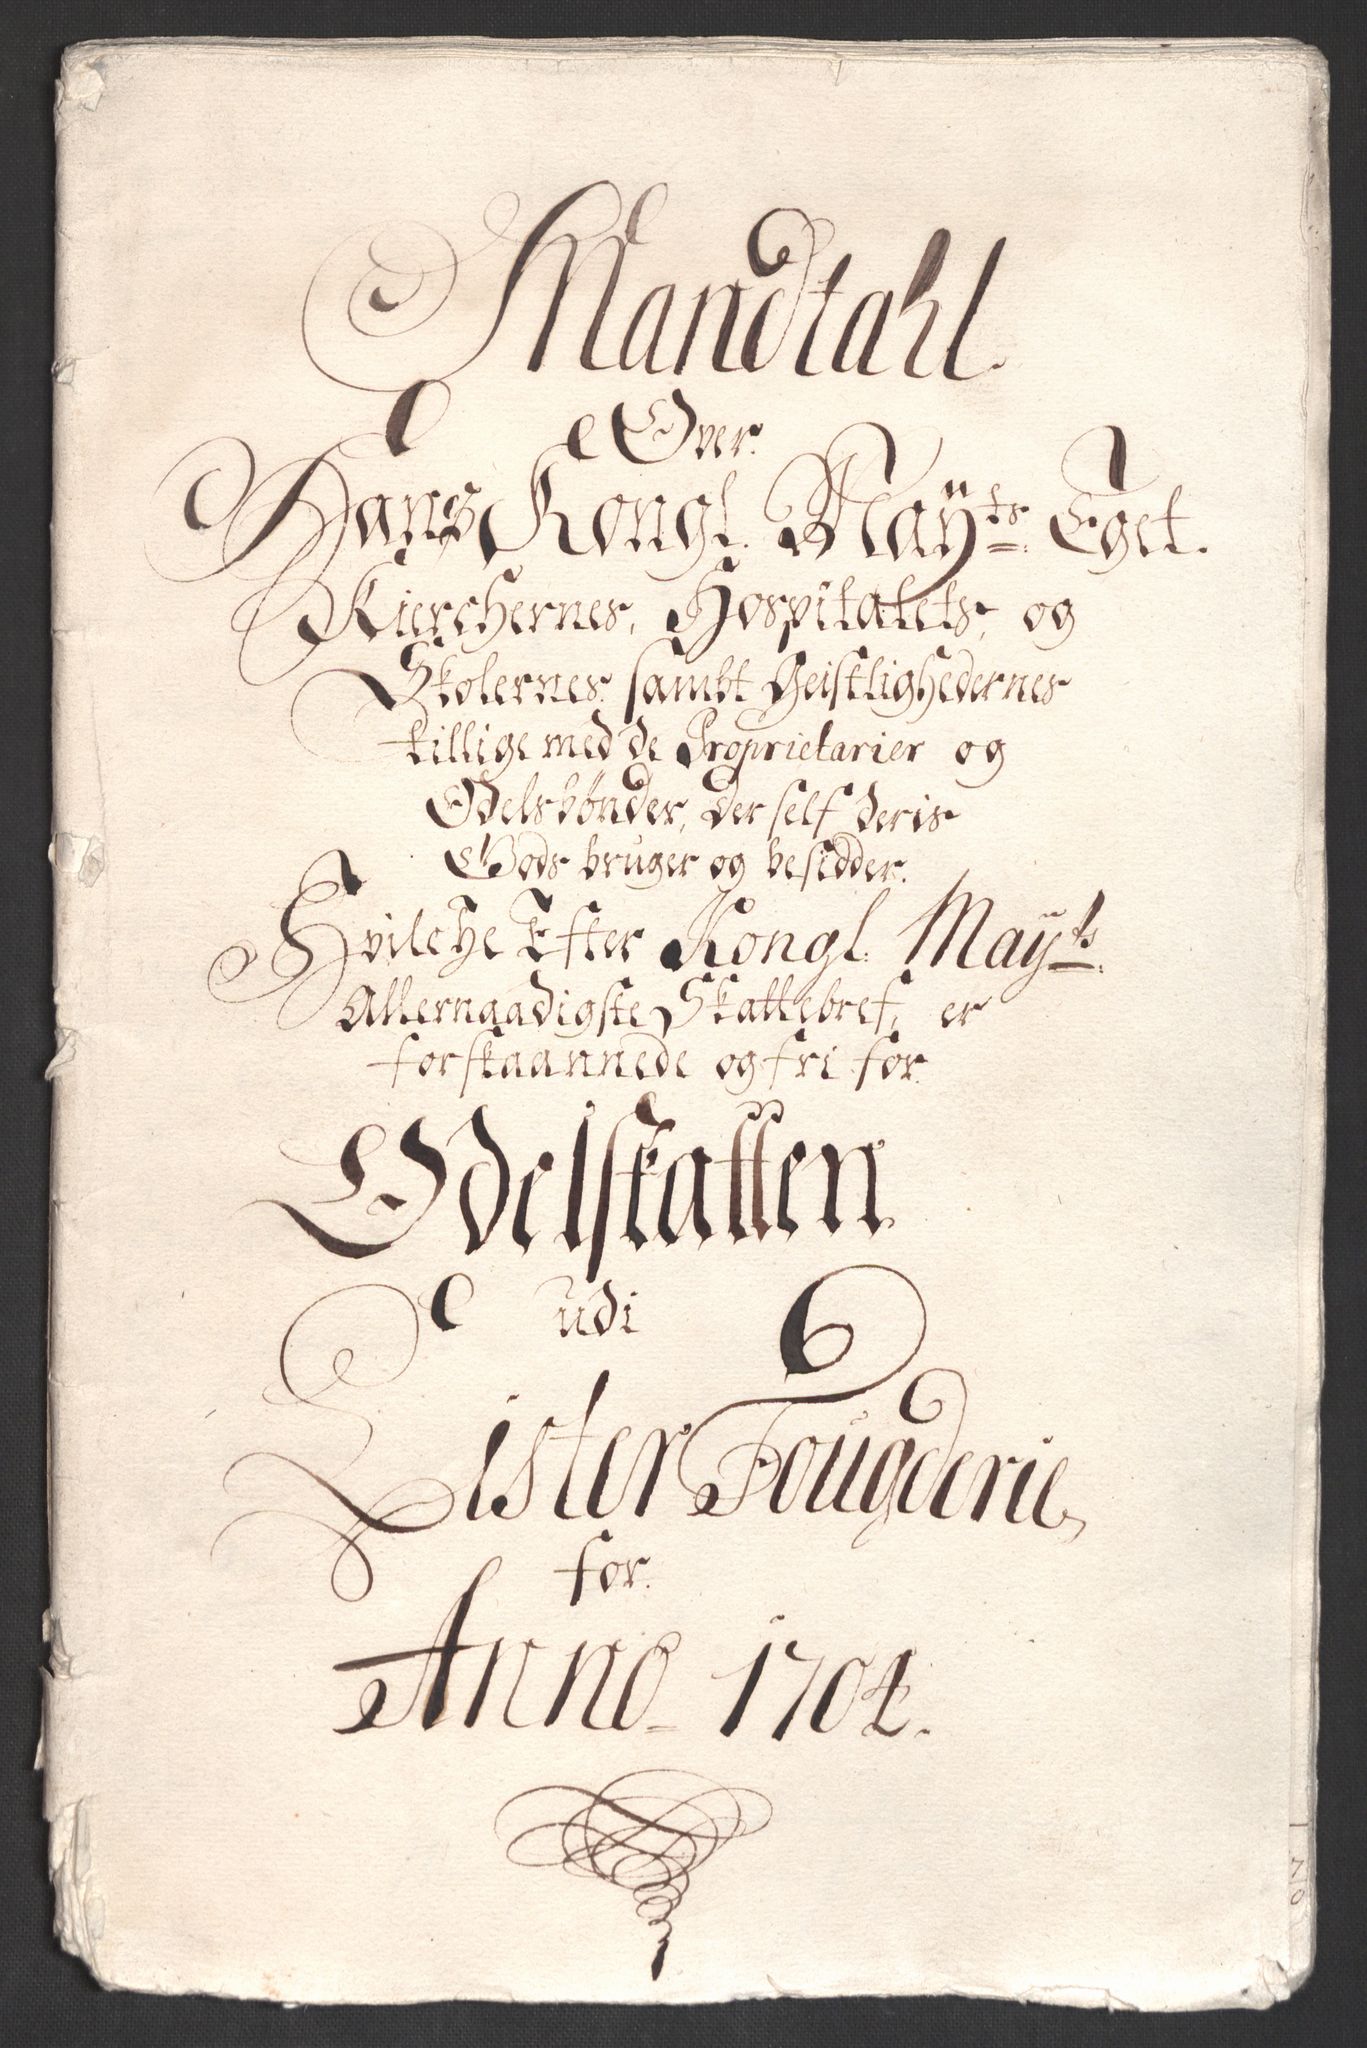 Mandtahl
Over
Hans Kongl. Mayts Eget
Kierchernes, Hospitalets, og
Skolernes sambt Geistlighedernes
tillige med de Proprietarier og
Odelsbønder, der self deris
Gods bruger og besidder.
Hvilche Efter Kongl. Mayts
Allernaadigste Skattebref, er
forskaannede og fri for
Odelskatten
udi
Lister Fougderie,
for
Anno 1704.